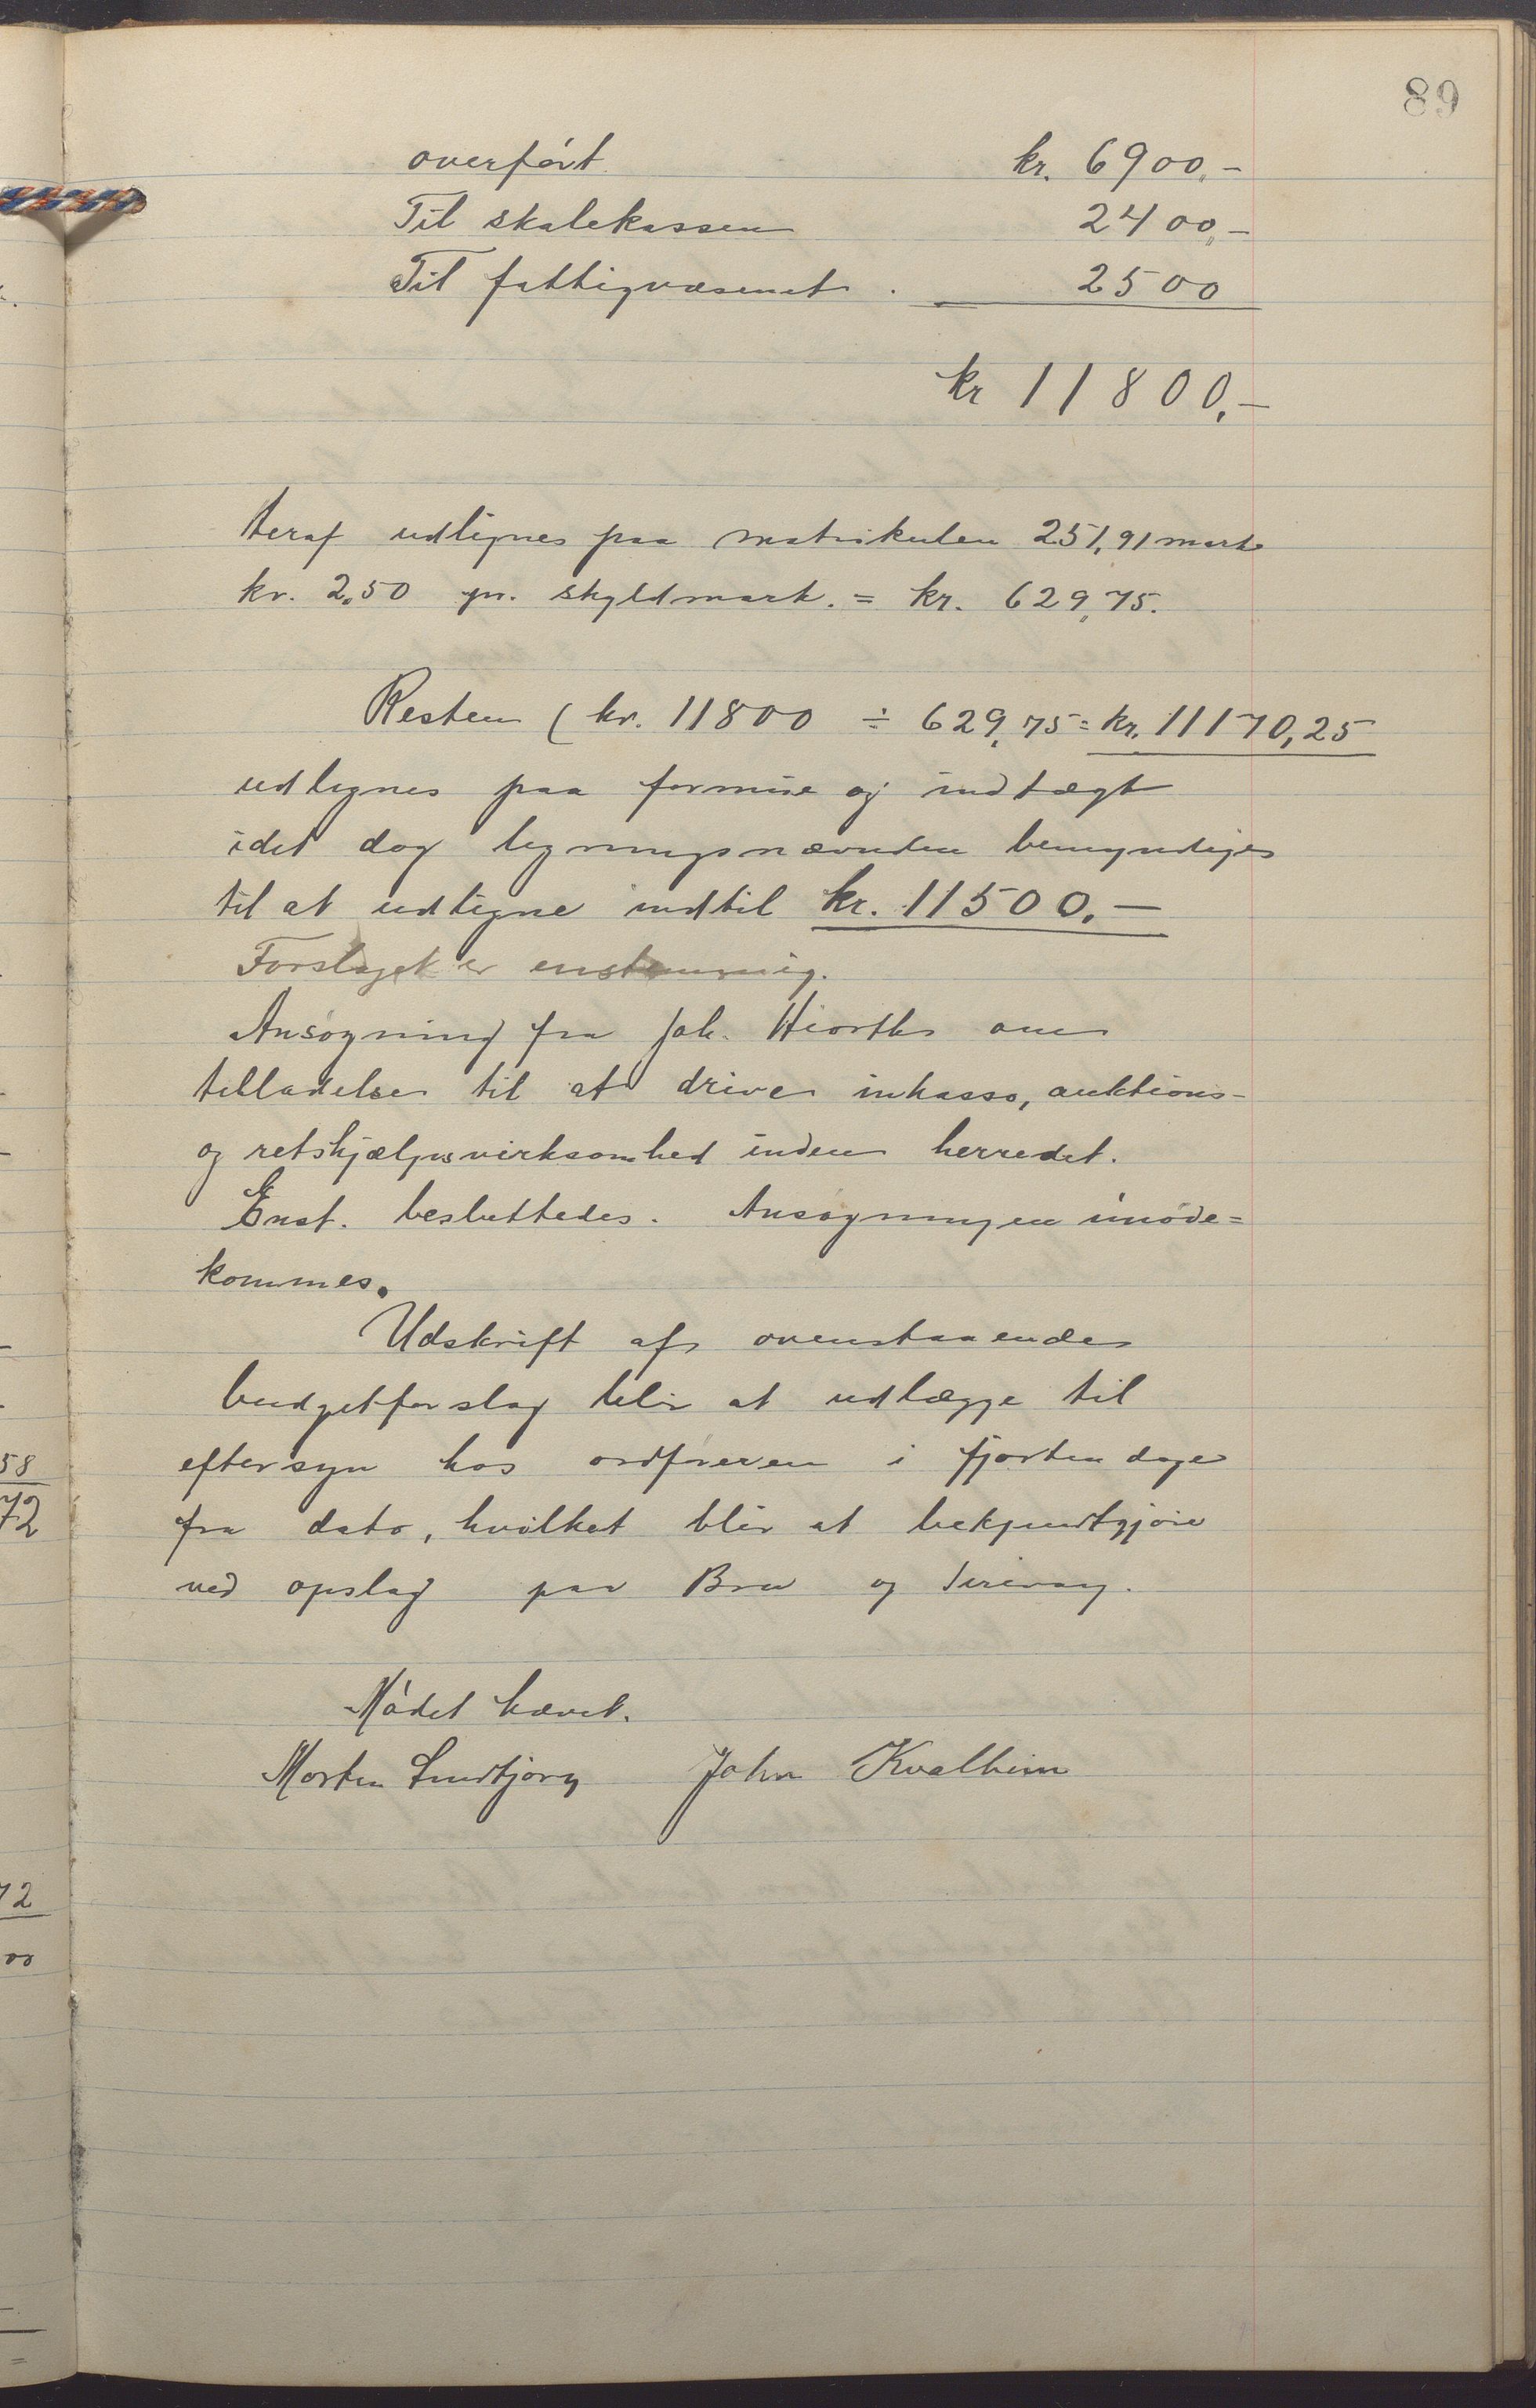 89
overført kr. 6900,-
Til skolekassen 2400,-
Til fattigvæsenet . 2500
kr 11800,-
deraf udlignes paa matrikulen 251,91 mark
kr. 2,50 pr. skyldmark. = kr. 629,75.
Resten (kr. 11800 ÷ 629,75 = kr. 11170,25
udlignes paa formue og indtægt
idet dog ligningsnævnden bemyndiges
til at udligne indtil kr. 11500.-
Forslaget er enstemmig.
Ansøgning fra Joh. Hiorth om
tilladelse til at drive inkasso, auktions-
og retshjælpsvirksomhed inden herredet.
Enst. besluttedes. Ansøgningen imøde=
kommes.
Udskrift af ovenstaaende
budgetforslag blir at udlægge til
eftersyn hos ordføreren i fjorten dage
fra dato, hvilket blir at bekjendtgjøre
ved opslag paa Bru og Sirevaag.
Mødet hævet.
Morten John Kvalheim
58
72
72
00